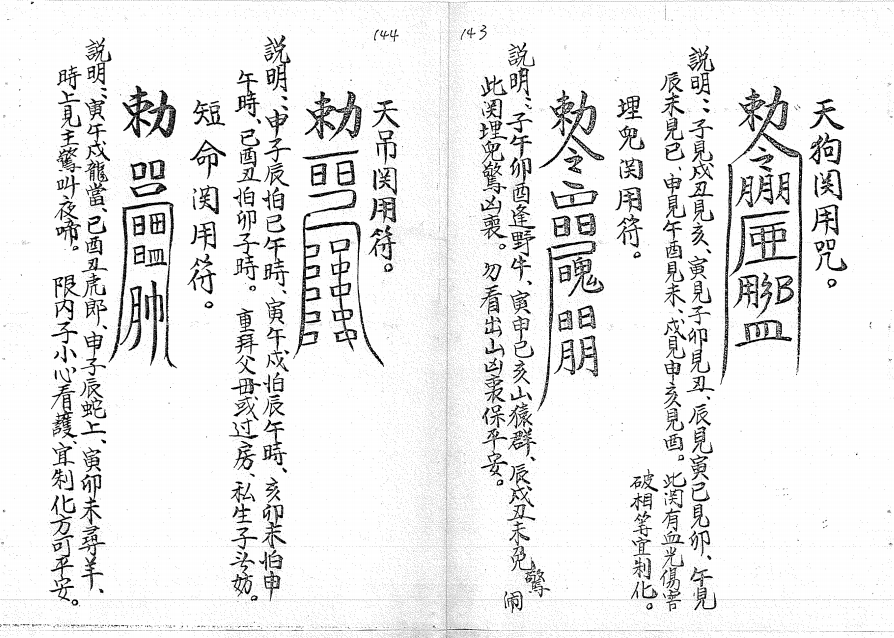 143
天狗関用咒。
勅令
說明：子見戌丑見亥、寅見子卯見丑、辰見寅巳見卯、午見
辰未見巳、申見午酉見未、戌見申亥見酉。此関有血光傷害
破相等宜制化。
埋兒関用符。
勅令
說明：子午卯酉逢野牛、寅申巳亥山猿群、辰戌丑未兔驚闹
此関埋兒驚凶喪。勿看出山凶喪保平安。
144
天吊関用符。
勅
說明：申子辰怕巳午時、寅午戌怕辰午時、亥卯未怕申
午時、巳酉丑怕卯子時。重拜父母或过房、私生子头妨。
短命関用符。
勅
說明：寅午戌龍當、巳酉丑虎郎、申子辰蛇上、寅卯未尋羊、
時上見主驚叫夜啼。限内子小心看護、宜制化方可平安。